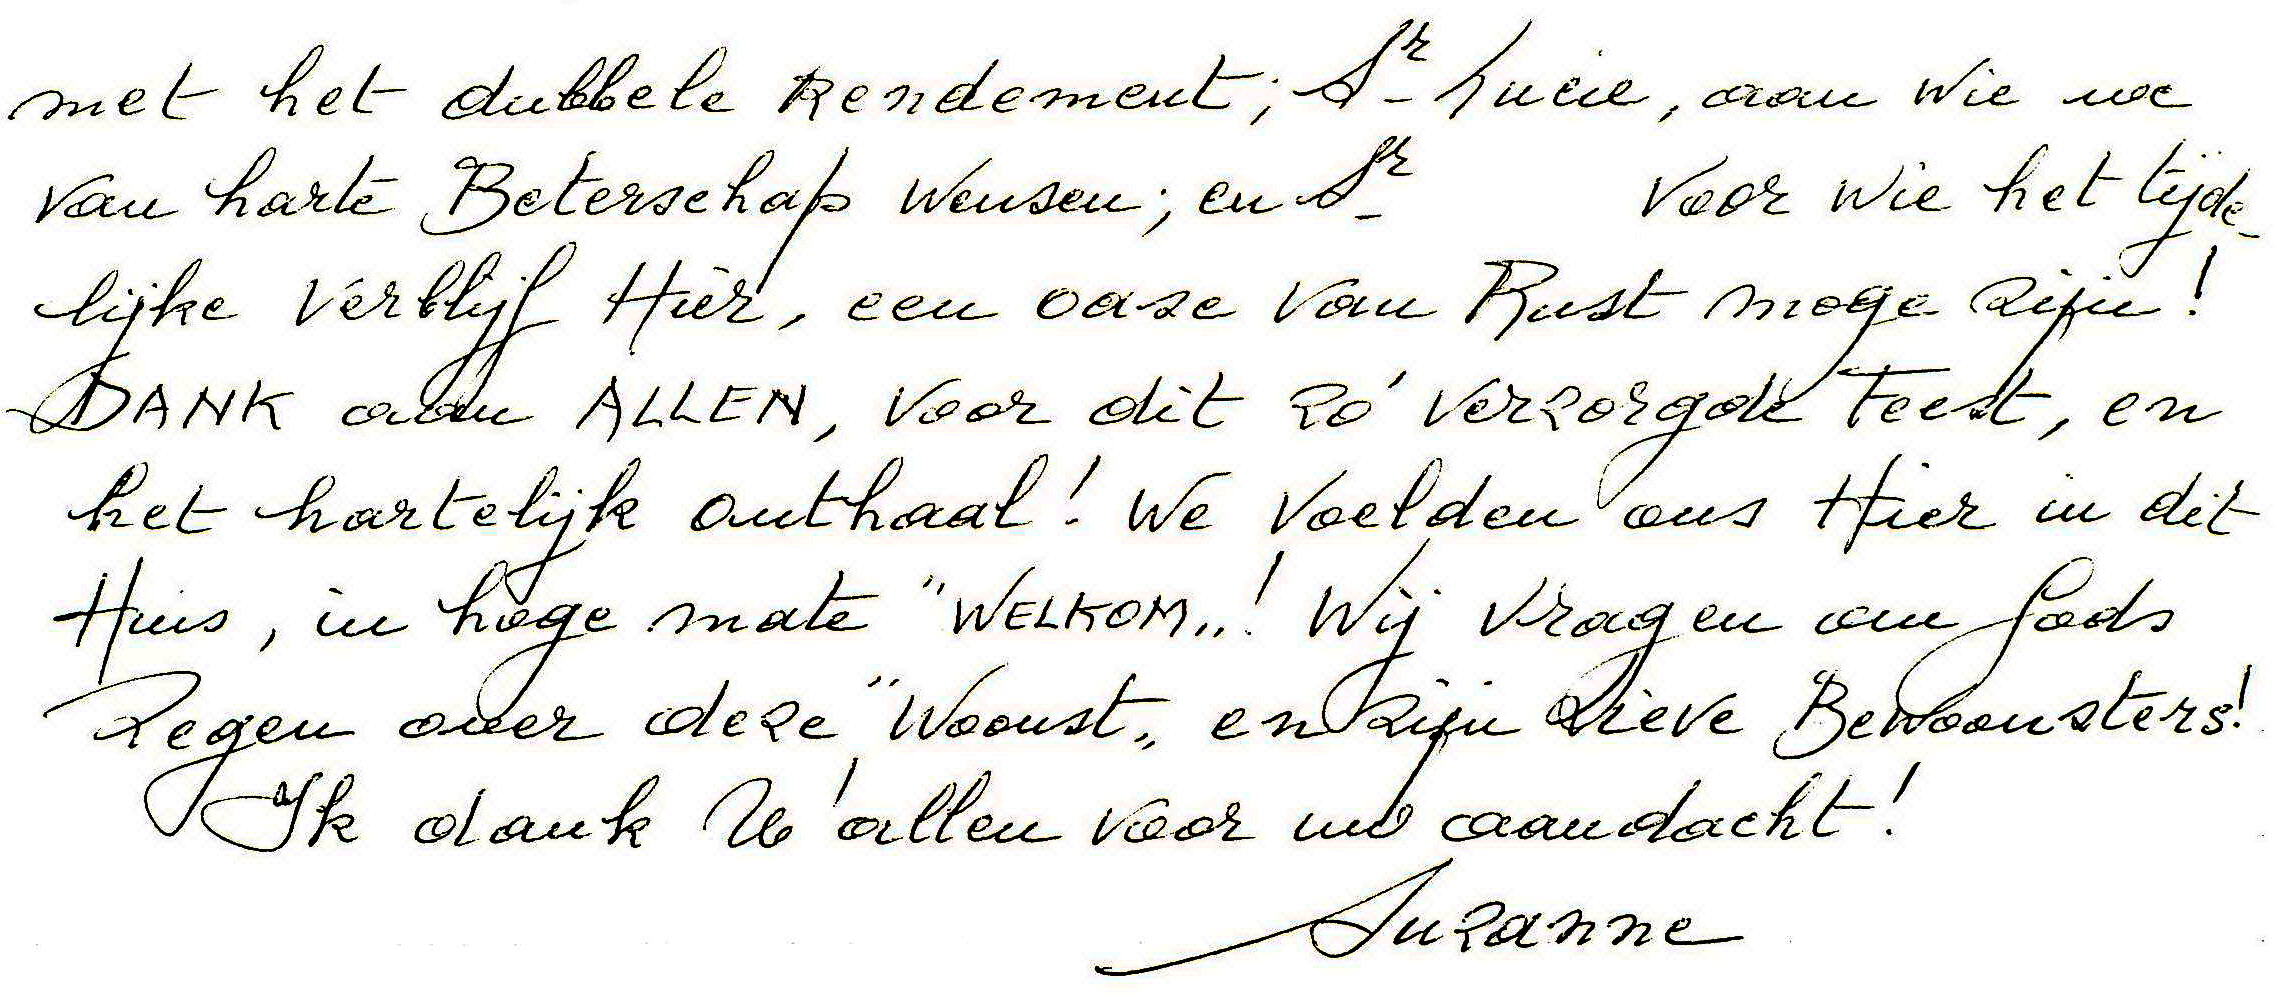 met het dubbele Rendement; Sr Lucie, aan wie we
van harte Beterschap wensen; en Sr voor wie het tijde-
lijke verblijf Hier, een oase van Rust moge zijn!
DANK aan ALLEN, voor dit zó verzorgde Feest, en
het hartelijk onthaal! We voelden ons Hier in dit
Huis, in hoge mate "WELKOM„! Wij vragen om Gods
Zegen over deze "Woonst„ en zijn Lieve Bewoonsters!
Ik dank U allen voor uw aandacht!
Suzanne